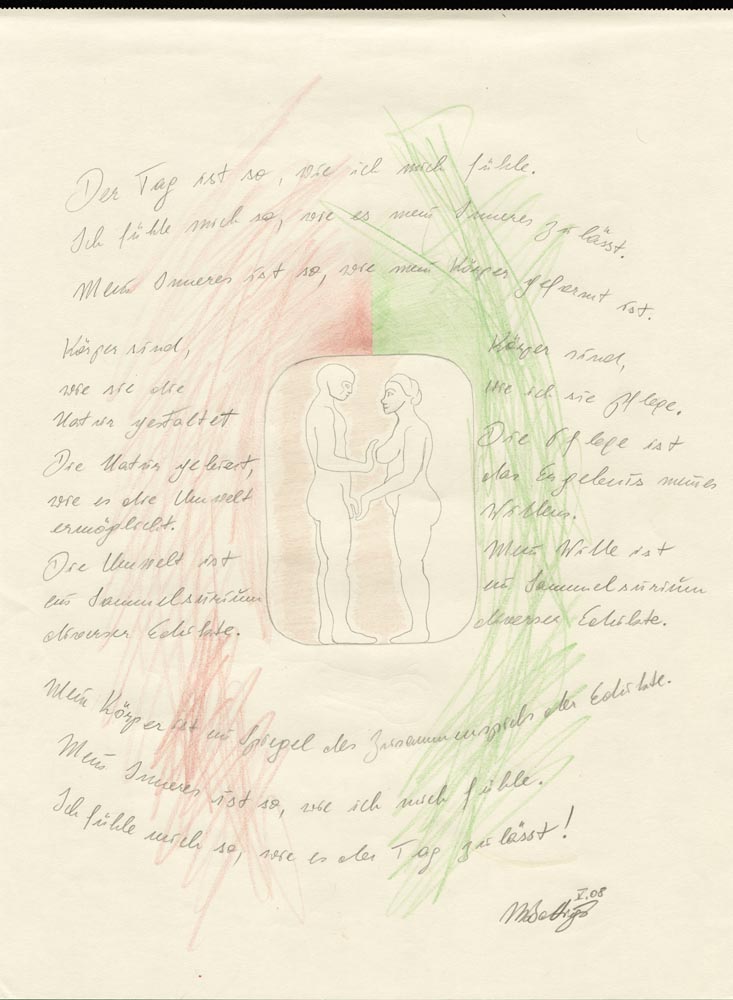 Der Tag ist so, wie ich mich fühle.
Ich fühle mich so, wie es mein Inneres zulässt.
Mein Inneres ist so, wie mein Körper geformt ist.
Körper sind,
wie sie die
Natur gestaltet
Die Natur gebiert,
wie es die Umwelt
ermöglicht.
Die Umwelt ist
ein Sammelsurium
diverser Edikte.
Körper sind,
wie ich sie pflege.
Die Pflege ist
das Ergebnis meines
Willens.
Mein Wille ist
ein Sammelsurium
diverser Edikte.
Mein Körper ist ein Spiegel des Zusammenspiels der Edikte.
Mein Inneres ist so, wie ich mich fühle.
Ich fühle mich so, wie es der Tag zulässt!
V.08